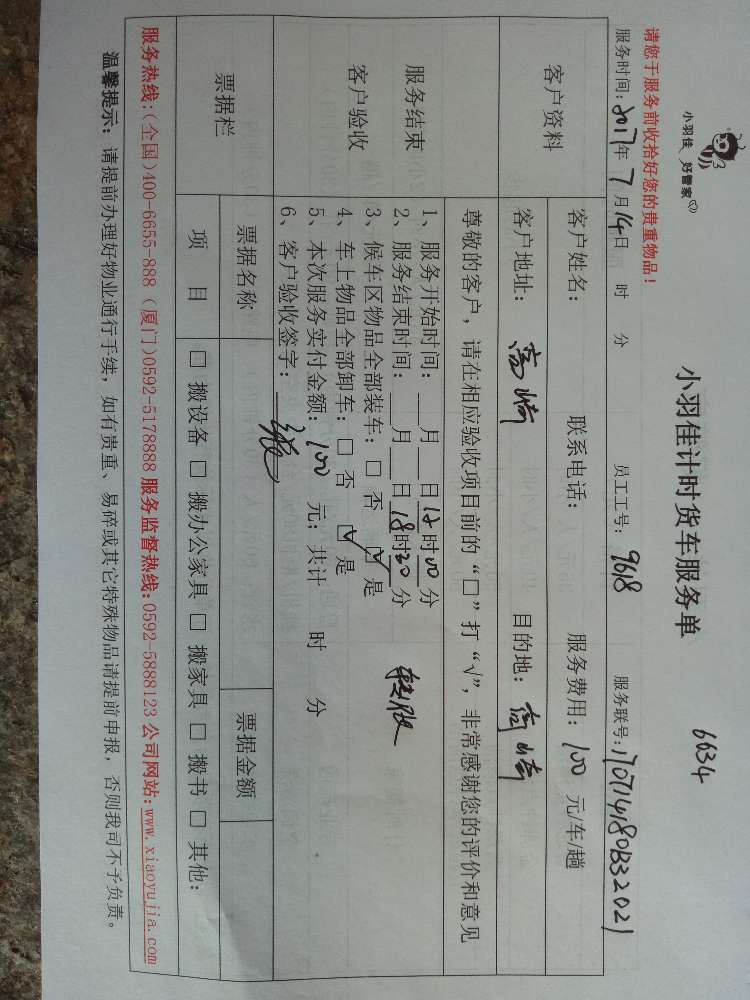 小羽佳 好管家
小羽佳计时货车服务单
6634
请您于服务前收拾好您的贵重物品！
服务时间：2017年 7月14日 时 分 员工工号：9618 服务联号：170714180B32021
客户资料
客户姓名： 联系电话： 服务费用：100 元/车/趟
客户地址：高崎 目的地：高崎
服务结束
客户验收
尊敬的客户，请在相应验收项目前的“□”打“√”，非常感谢您的评价和意见
1、服务开始时间：__月__日 时00分
2、服务结束时间：__月__日18时30分
3、候车区物品全部装车：□ 否 ☑ 是
4、车上物品全部卸车：□ 否 ☑ 是
5、本次服务实付金额：100 元；共计 时 分
6、客户验收签字：
票据栏
票据名称 票据金额
项 目 □ 搬设备 □ 搬办公家具 □ 搬家具 □ 搬书 □ 其他：
服务热线：(全国)400-6655-888 (厦门)0592-5178888 服务监督热线：0592-5888123 公司网站：www.xiaoyujia.com
温馨提示：请提前办理好物业通行手续，如有贵重、易碎或其它特殊物品请提前申报，否则我司不予负责。